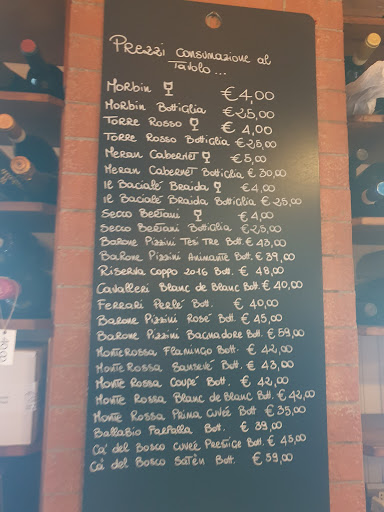 Prezzi consumazione al
Tavolo...
Morbin €4,00
Morbin Bottiglia €25,00
Torre Rosso € 4,00
Torre Rosso Bottiglia €25,00
Meran Cabernet €5,00
Meran Cabernet Bottiglia €30,00
Il Bacialé Braida €4,00
Il Bacialé Braida Bottiglia €25,00
Secco Bertani €4,00
Secco Bertani Bottiglia €25,00
Barone Pizzini Tesi Tre Bott. €43,00
Barone Pizzini Animante Bott. €39,00
Riserva Coppo 2016 Bott. € 48,00
Cavalleri Blanc de Blanc Bott. €40,00
Ferrari Perlé Bott. € 40,00
Barone Pizzini Rosé Bott. €45,00
Barone Pizzini Bagnadore Bott. €59,00
Monterossa Flamingo Bott. € 42,00
Monte Rossa Sansevé Bott. € 43,00
Monte Rossa Coupé Bott. € 42,00
Monte Rossa Blanc de Blanc Bott. €42,00
Monte Rossa Prima Cuvée Bott €35,00
Ballabio Farfalla Bott. € 39,00
Ca' del Bosco Cuvée Prestige Bott. € 45,00
Ca' del Bosco Satèn Bott. € 59,00